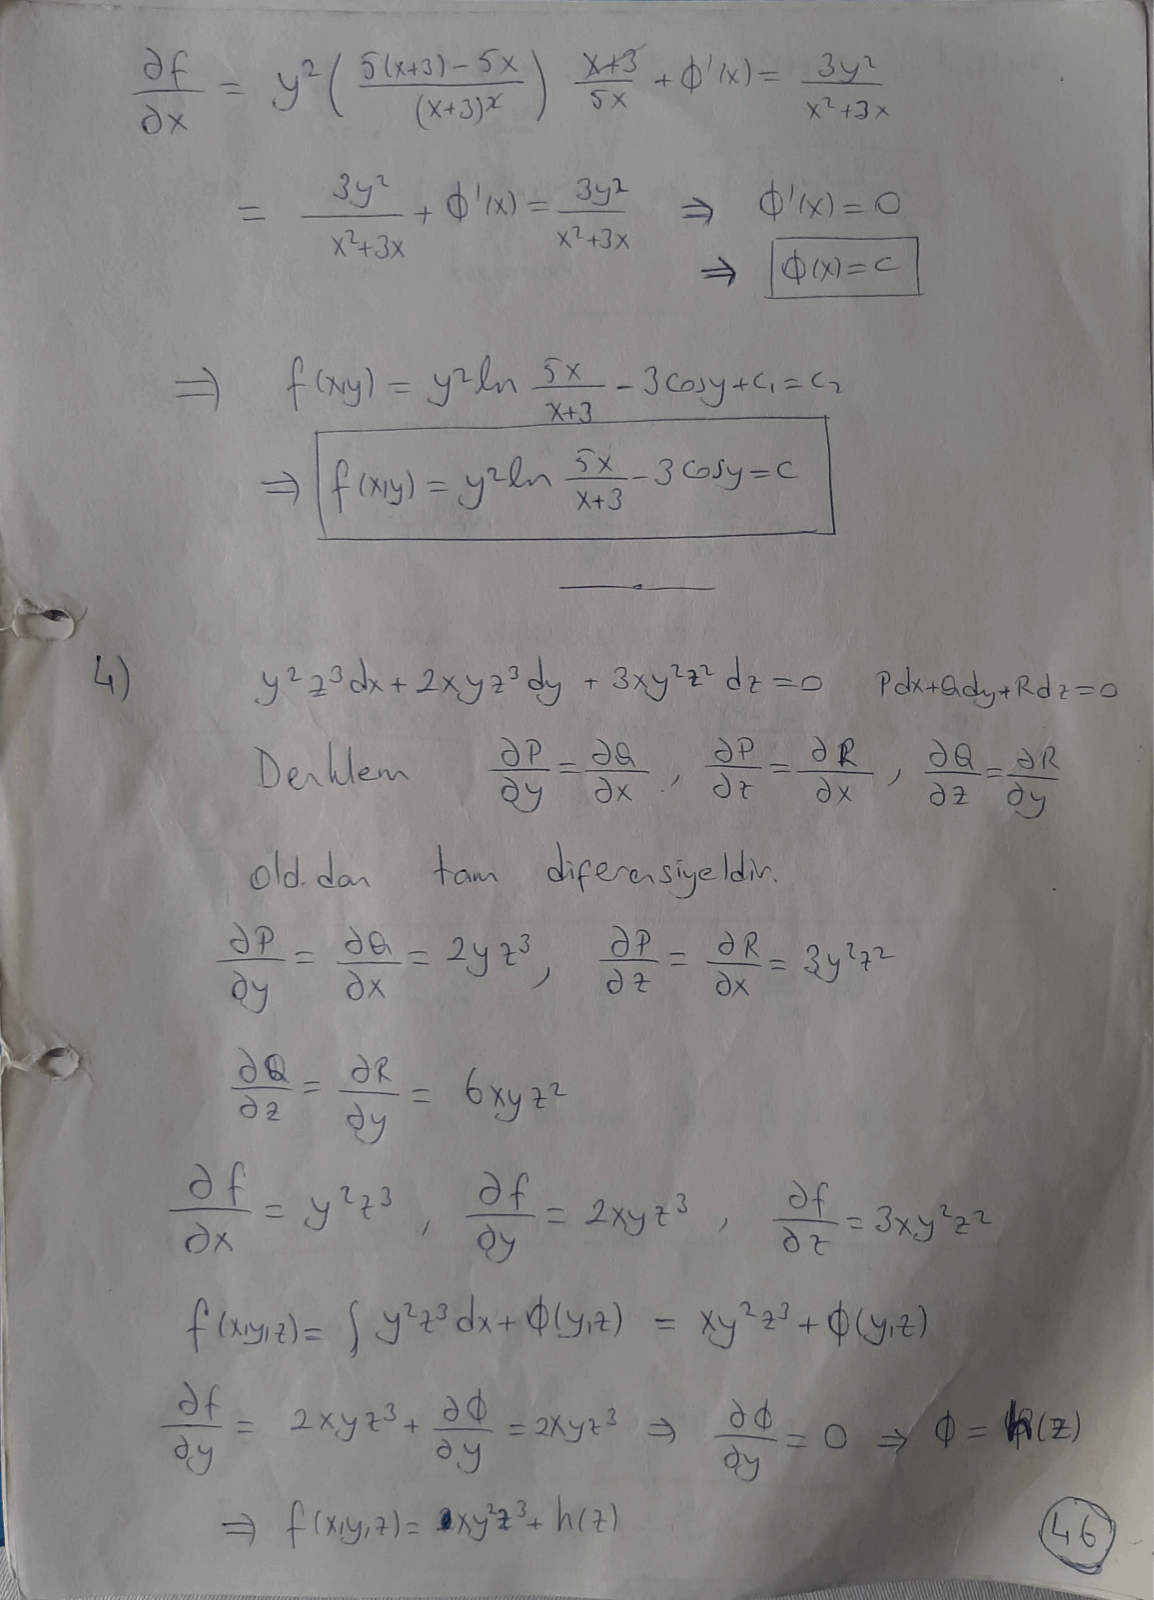 ∂f/∂x = y²( (5(x+3) − 5x)/(x+3)² ) (x+3)/(5x) + ϕ'(x) = 3y²/(x²+3x)
= 3y²/(x²+3x) + ϕ'(x) = 3y²/(x²+3x) ⇒ ϕ'(x) = 0
⇒ ϕ(x) = c
⇒ f(x,y) = y² ln 5x/(x+3) − 3cosy + c₁ = c₂
⇒ f(x,y) = y² ln 5x/(x+3) − 3cosy = c
4) y²z³dx + 2xyz³dy + 3xy²z²dz = 0 Pdx+Qdy+Rdz=0
Denklem ∂P/∂y = ∂Q/∂x , ∂P/∂z = ∂R/∂x , ∂Q/∂z = ∂R/∂y
old.dan tam diferensiyeldir.
∂P/∂y = ∂Q/∂x = 2yz³, ∂P/∂z = ∂R/∂x = 3y²z²
∂Q/∂z = ∂R/∂y = 6xyz²
∂f/∂x = y²z³ , ∂f/∂y = 2xyz³ , ∂f/∂z = 3xy²z²
f(x,y,z) = ∫ y²z³dx + ϕ(y,z) = xy²z³ + ϕ(y,z)
∂f/∂y = 2xyz³ + ∂ϕ/∂y = 2xyz³ ⇒ ∂ϕ/∂y = 0 ⇒ ϕ = h(z)
⇒ f(x,y,z) = xy²z³ + h(z)
46